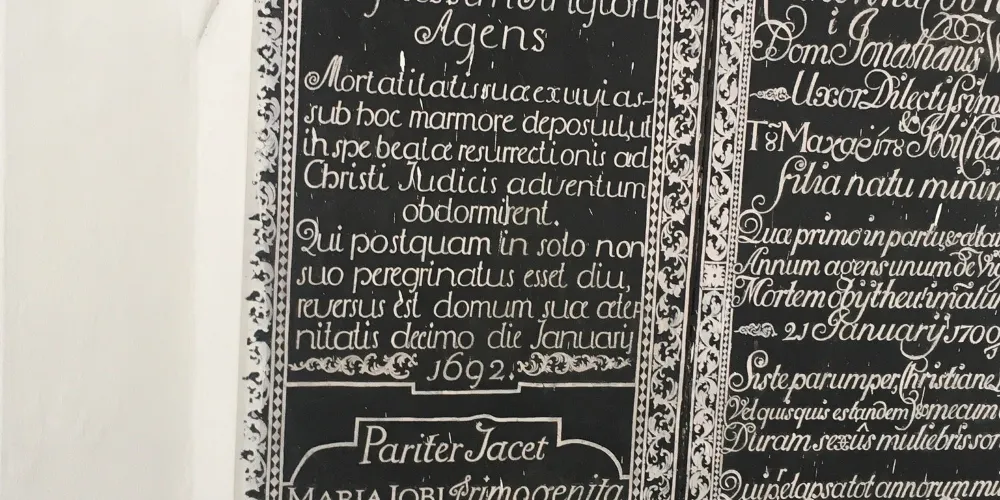 Agens
Mortalitatis suæ exuvias
sub hoc marmore deposuit, ut
in spe beatæ resurrectionis ad
Christi Judicis adventum
obdormirent.
Qui postquam in solo non
suo peregrinatus esset diu,
reversus est domum suæ æter
nitatis decimo die Januarij
1692.
Pariter Jacet
MARIA JOBI Primogenita
Dom Jonathanis
Uxor Dilectissim
&
filia natu minim
Qua primo in partu
Annum agens unum de
Mortem
21 Januarij 1709
Siste parumper, Christiane
Vel quisquis es tandem mecum
Duram sexûs muliebris sor
Qui elapsa tot annorum